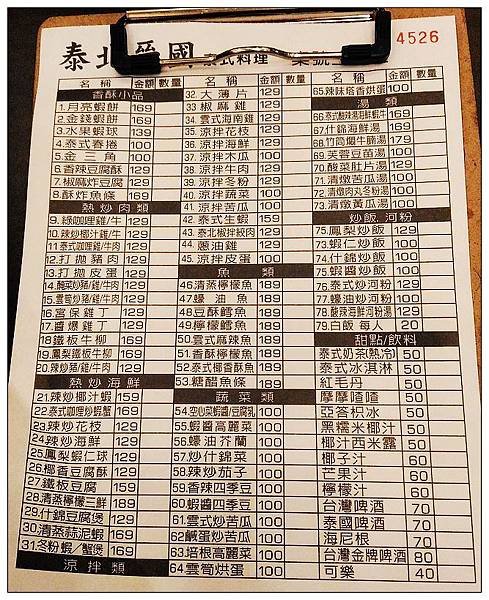 泰北
國
泰式料理
4526
名稱 金額 數量
香酥小品
1.月亮蝦餅 169
2.金錢蝦餅 169
3.水果蝦球 139
4.泰式春捲 100
5.金三角 100
6.香辣豆腐酥 129
7.椒麻炸豆腐 129
8.酥炸魚條 169
熱炒肉類
9.綠咖哩雞/牛 129
10.辣炒椰汁雞/牛 129
11.泰式咖哩雞/牛肉 129
12.打拋豬肉 129
13.打拋皮蛋 129
16.宮保雞丁 129
17.醬爆雞丁 129
18.鐵板牛柳 169
19.鳳梨鐵板牛柳 169
20.辣炒豬/雞/牛肉 129
熱炒海鮮
21.辣炒椰汁蝦 159
22.泰式咖哩炒蝦蟹 169
23.辣炒花枝 129
24.辣炒海鮮 129
25.鳳梨蝦仁球 129
26.椰香豆腐酥 129
27.鐵板豆腐 159
28.清蒸檸檬三鮮 189
29.什錦豆腐煲 129
30.清蒸蒜泥蝦 169
31.冬粉蝦/蟹煲 169
涼拌類
名稱 金額 數量
32.大薄片 129
33.椒麻雞 129
34.雲式海南雞 129
35.涼拌花枝 129
36.涼拌海鮮 129
37.涼拌木瓜 100
38.涼拌牛肉 129
39.涼拌冬粉 129
40.涼拌蔬菜 100
41.涼拌苦瓜 100
42.泰式生蝦 159
43.泰北椒拌絞肉 129
44.蔥油雞 129
45.涼拌皮蛋 100
魚類
46.清蒸檸檬魚 189
47.蠔油魚 189
48.豆酥鱈魚 189
49.檸檬鱈魚 189
50.雲式麻辣魚 189
51.香酥檸檬魚 189
52.泰式椰香酥魚 189
53.糖醋魚條 189
蔬菜類
54.空心菜蝦醬/豆腐乳 100
55.蝦醬高麗菜 100
56.蠔油芥蘭 100
57.炒什錦菜 100
58.辣炒茄子 100
59.香辣四季豆 100
60.蝦醬四季豆 100
61.雲式炒苦瓜 100
62.鹹蛋炒苦瓜 100
63.培根高麗菜 100
64.雲筍烘蛋 100
名稱 金額 數量
65.辣妹塔香烘蛋 100
湯類
66.泰式酸辣湯海鮮/蝦/牛 169
67.什錦海鮮湯 169
68.竹筒爛牛腩湯 179
69.芙蓉豆苗湯 100
70.酸菜肚片湯 129
71.清燉苦瓜湯 100
72.清燉肉丸冬粉湯 100
73.清燉黃瓜湯 100
炒飯.河粉
75.鳳梨炒飯 129
73.蝦仁炒飯 100
74.什錦炒飯 100
75.蝦醬炒飯 100
76.泰式炒河粉 129
77.蠔油炒河粉 100
78.酸辣海鮮河粉湯 129
79.白飯 每人 20
甜點/飲料
泰式奶茶(熱冷) 50
泰式冰淇淋 50
紅毛丹 50
摩摩喳喳 50
亞答枳冰 50
黑糯米椰汁 50
椰汁西米露 50
椰子汁 60
芒果汁 60
檸檬汁 60
台灣啤酒 70
泰國啤酒 70
海尼根 70
台灣金牌啤酒 80
可樂 40